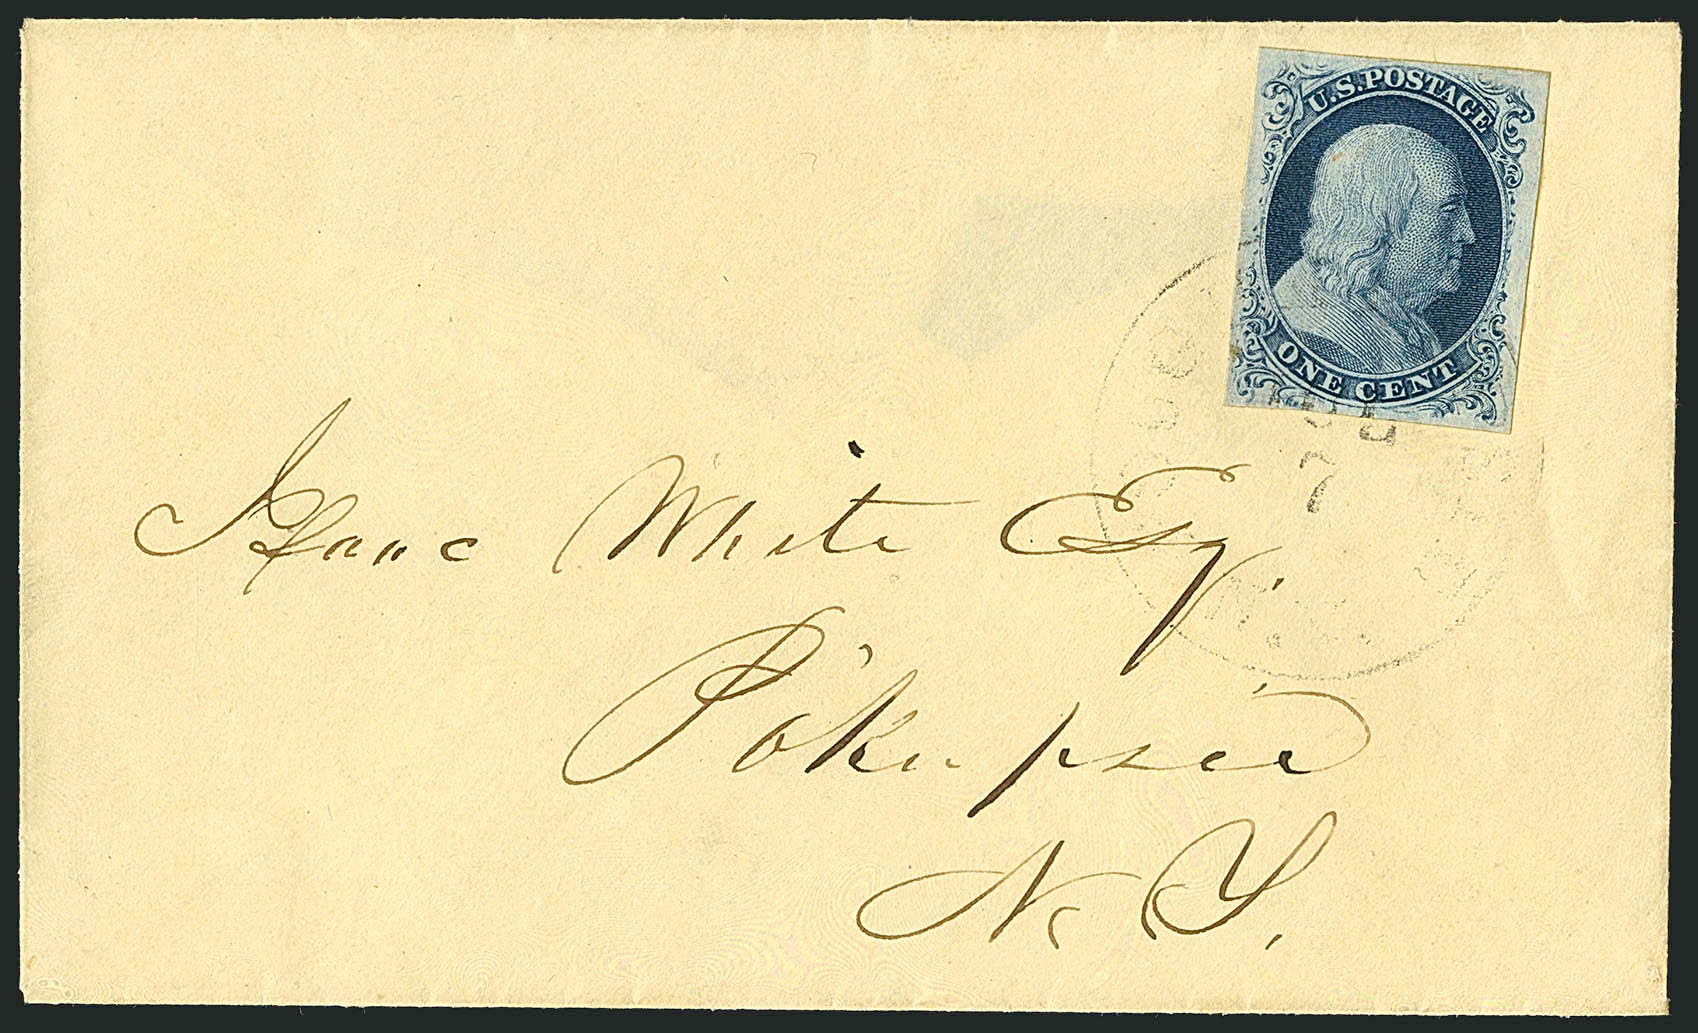 U.S. POSTAGE
ONE CENT
JUL
7
N.Y.
Isaac White Esq.
Po'keepsie
N. Y.